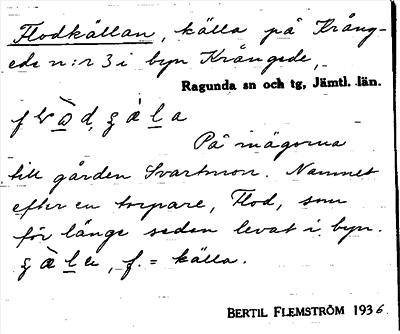 Flodkällan, källa på Krång-
ede n:r 3 i byn Krångede,
Ragunda sn och tg, Jämtl. län.
På mägorna
till gården Svartmon. Namnet
efter en torpare, Flod, som
för länge sedan levat i byn.
f. = källa.
BERTIL FLEMSTRÖM 1936.